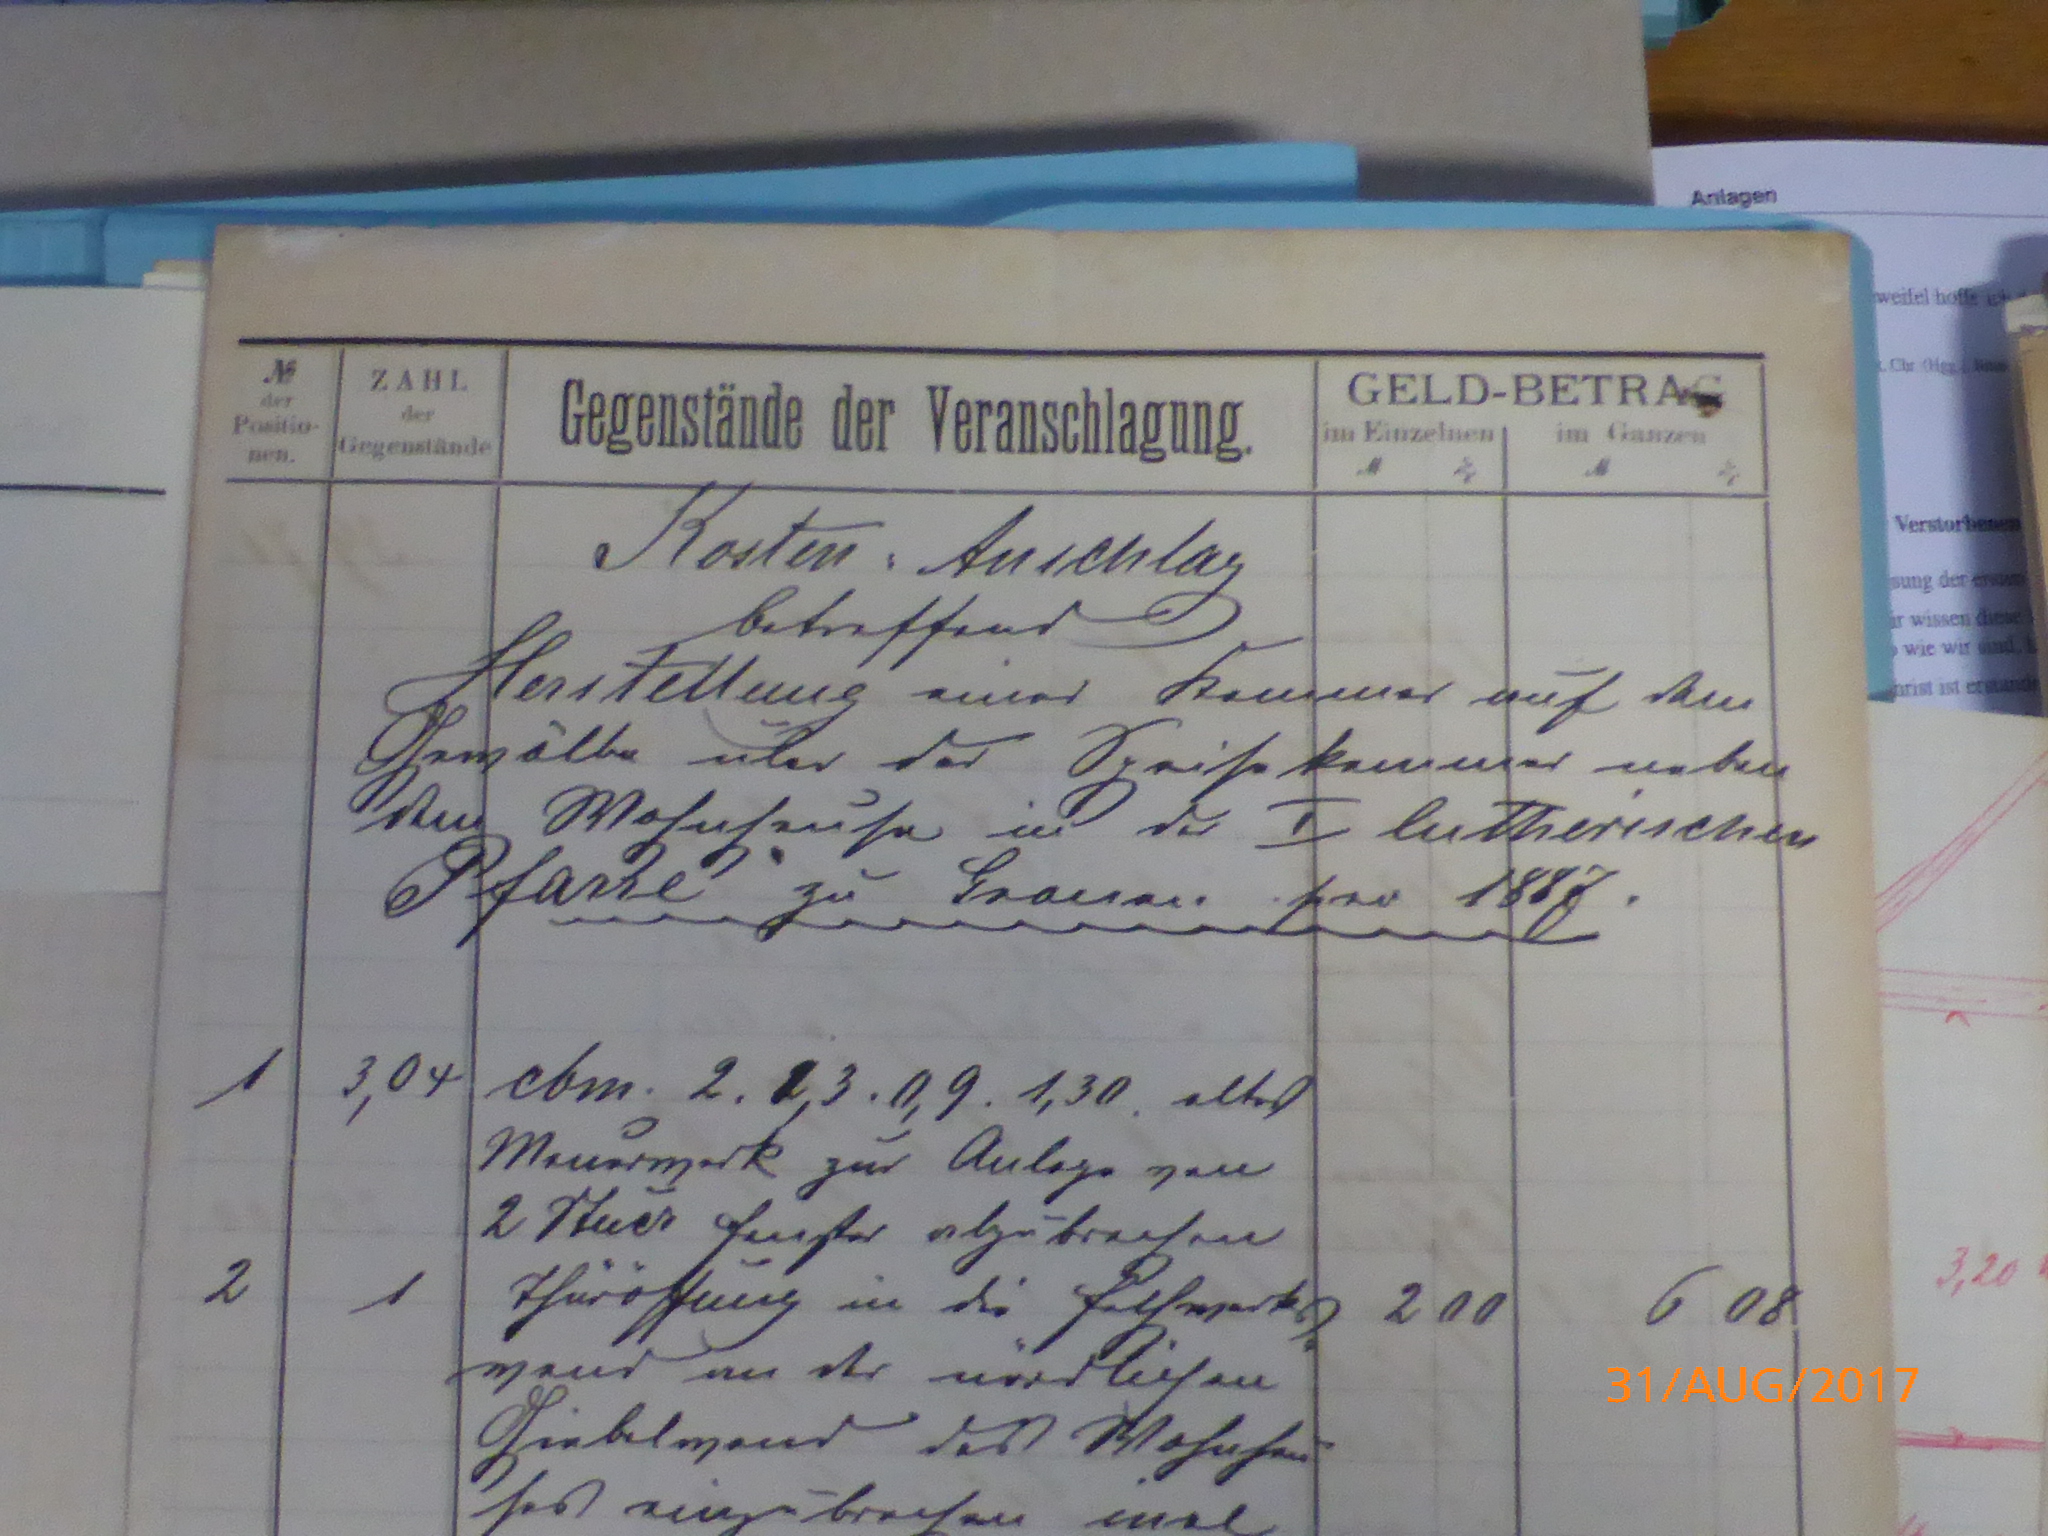 Anlagen
weifel hoffe ich
№ der Positio-nen.
ZAHL der Gegenstände
Gegenstände der Veranschlagung.
GELD-BETRAG
im Einzelnen
im Ganzen
ℳ ₰ ℳ ₰
Kosten-Anschlag
betreffend
Herstellung einer Kammer auf dem
Gewölbe über der Speisekammer neben
dem Wohnhause in der I lutherischen
Pfarre zu Gronau pro 1887.
1 3,04 cbm. 2. 1,3. 0,9. 1,30. altes
Mauerwerk zur Anlage von
2 Stück Fenster abzubrechen 2 00 6 08
2 1 Thüröffnung in die Fachwerks
wand an der nördlichen
Giebelwand des Wohnhau
ses einzubrechen incl
Verstorbenen
sung der ersten
ir wissen diese
wie wir sind,
hrist ist erstande
3,20
31/AUG/2017